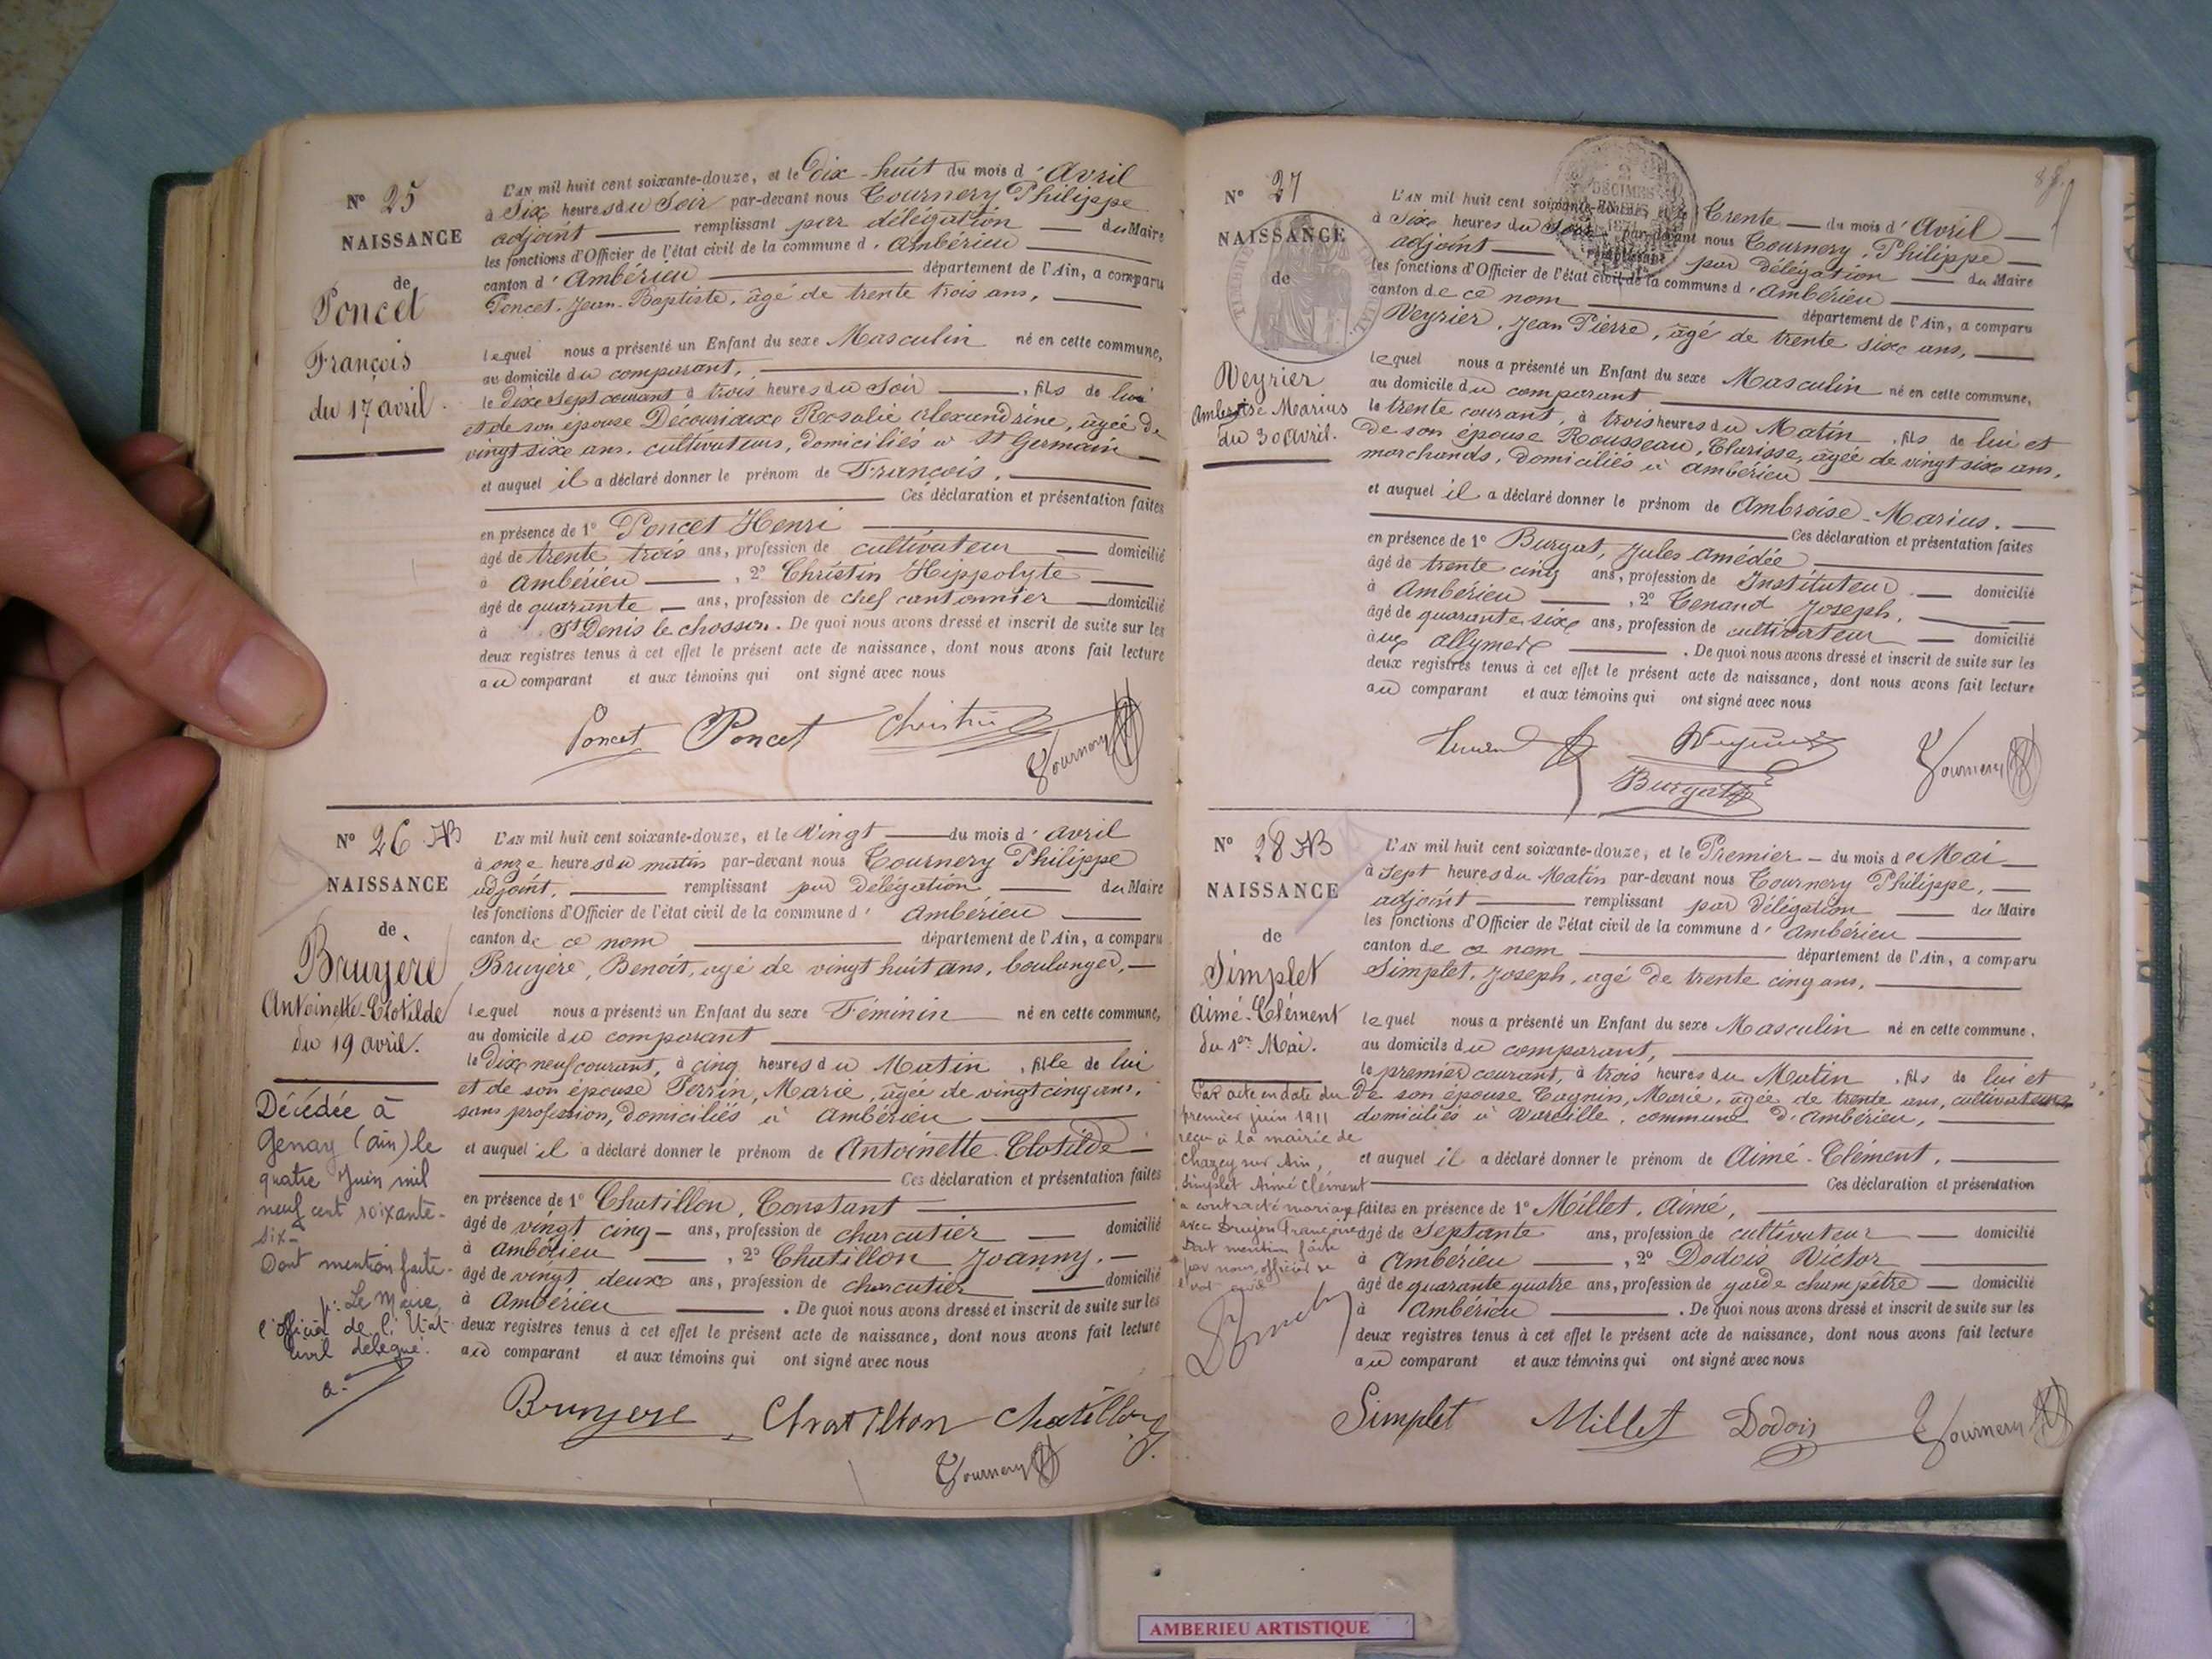 N° 25
NAISSANCE
de
Poncet
François
du 17 avril.
L'AN mil huit cent soixante-douze, et le Dix-huit du mois d'Avril
à Six heures du Soir par-devant nous Tournery Philippe
adjoint remplissant par délégation du Maire
les fonctions d'Officier de l'état civil de la commune d'Ambérieu
canton d'Ambérieu département de l'Ain, a comparu
Poncet, Jean-Baptiste, âgé de trente trois ans,
lequel nous a présenté un Enfant du sexe Masculin né en cette commune,
au domicile du comparant,
le dixe sept courant à trois heures du Soir, fils de lui
et de son épouse Découriaux Rosalie Alexandrine, âgée de
vingt six ans, cultivateurs, domiciliés à St Germain
et auquel il a déclaré donner le prénom de François.
Ces déclaration et présentation faites
en présence de 1° Poncet Henri
âgé de trente trois ans, profession de cultivateur domicilié
à Ambérieu, 2° Christin Hippolyte
âgé de quarante ans, profession de chef cantonnier domicilié
à St Denis le chosson. De quoi nous avons dressé et inscrit de suite sur les
deux registres tenus à cet effet le présent acte de naissance, dont nous avons fait lecture
au comparant et aux témoins qui ont signé avec nous
Poncet Poncet Christin
Tournery
N° 26 NB
NAISSANCE
de
Bruyère
Antoinette-Clotilde
du 19 avril.
Décédée à
Genay (Ain) le
quatre Juin mil
neuf cent soixante-
six-
Dont mention faite.
p. Le Maire,
l'officier de l'Etat-
civil délégué.
L'AN mil huit cent soixante-douze, et le Vingt du mois d'avril
à onze heures du matin par-devant nous Tournery Philippe
adjoint, remplissant par Délégation du Maire
les fonctions d'Officier de l'état civil de la commune d'Ambérieu
canton de ce nom département de l'Ain, a comparu
Bruyère, Benoît, agé de vingt huit ans, boulanger,
lequel nous a présenté un Enfant du sexe Féminin né en cette commune,
au domicile du comparant
le Dixe neuf courant, à cinq heures du Matin, fille de lui
et de son épouse Perrin, Marie, âgée de vingt cinq ans,
sans profession, domiciliés à Ambérieu
et auquel il a déclaré donner le prénom de Antoinette Clotilde
Ces déclaration et présentation faites
en présence de 1° Chatillon, Constant
âgé de vingt cinq ans, profession de charcutier domicilié
à Ambérieu, 2° Chatillon Joanny.
âgé de vingt deux ans, profession de charcutier domicilié
à Ambérieu. De quoi nous avons dressé et inscrit de suite sur les
deux registres tenus à cet effet le présent acte de naissance, dont nous avons fait lecture
au comparant et aux témoins qui ont signé avec nous
Bruyere Chatillon Chatillon J.
Tournery
N° 27
NAISSANCE
de
Veyrier
Ambroise Marius
du 30 avril.
2
DÉCIMES
L'AN mil huit cent soixante-douze, et le Trente du mois d'Avril
à Six heures du Soir par-devant nous Tournery, Philippe
adjoint remplissant par Délégation du Maire
les fonctions d'Officier de l'état civil de la commune d'Ambérieu
canton de ce nom département de l'Ain, a comparu
Veyrier, Jean Pierre, âgé de trente six ans,
lequel nous a présenté un Enfant du sexe Masculin né en cette commune,
au domicile du comparant
le trente courant, à trois heures du Matin, fils de lui et
de son épouse Rousseau, Clarisse, agée de vingt six ans,
marchands, domiciliés à Ambérieu
et auquel il a déclaré donner le prénom de Ambroise-Marius.
Ces déclaration et présentation faites
en présence de 1° Burgat, Jules Amédée
âgé de trente cinq ans, profession de Instituteur domicilié
à Ambérieu, 2° Tenand Joseph,
âgé de quarante six ans, profession de cultivateur domicilié
allymes. De quoi nous avons dressé et inscrit de suite sur les
deux registres tenus à cet effet le présent acte de naissance, dont nous avons fait lecture
au comparant et aux témoins qui ont signé avec nous
Veyrier Tournery
Burgat
N° 28 NB
NAISSANCE
de
Simplet
Aimé-Clément
du 1er Mai.
Par acte en date du
premier juin 1911
reçu à la mairie de
Chazey sur Ain,
Simplet Aimé Clément
a contracté mariage
avec Drujon Françoise
Dont mention faite
par nous, officier de
l'état civil
L'AN mil huit cent soixante-douze, et le Premier du mois de Mai
à Sept heures du Matin par-devant nous Tournery Philippe,
adjoint remplissant par Délégation du Maire
les fonctions d'Officier de l'état civil de la commune d'Ambérieu
canton de ce nom département de l'Ain, a comparu
Simplet, Joseph, agé de trente cinq ans,
lequel nous a présenté un Enfant du sexe Masculin né en cette commune,
au domicile du comparant,
le premier courant, à trois heures du Matin, fils de lui et
de son épouse Cagnin, Marie, agée de trente ans, cultivateurs
domiciliés à Vareille, commune d'Ambérieu,
et auquel il a déclaré donner le prénom de Aimé-Clément.
Ces déclaration et présentation
faites en présence de 1° Millet, Aimé,
âgé de Septante ans, profession de cultivateur domicilié
à Ambérieu, 2° Dodois Victor
âgé de quarante quatre ans, profession de garde champêtre domicilié
à Ambérieu. De quoi nous avons dressé et inscrit de suite sur les
deux registres tenus à cet effet le présent acte de naissance, dont nous avons fait lecture
au comparant et aux témoins qui ont signé avec nous
Simplet Millet Dodois Tournery
AMBERIEU ARTISTIQUE